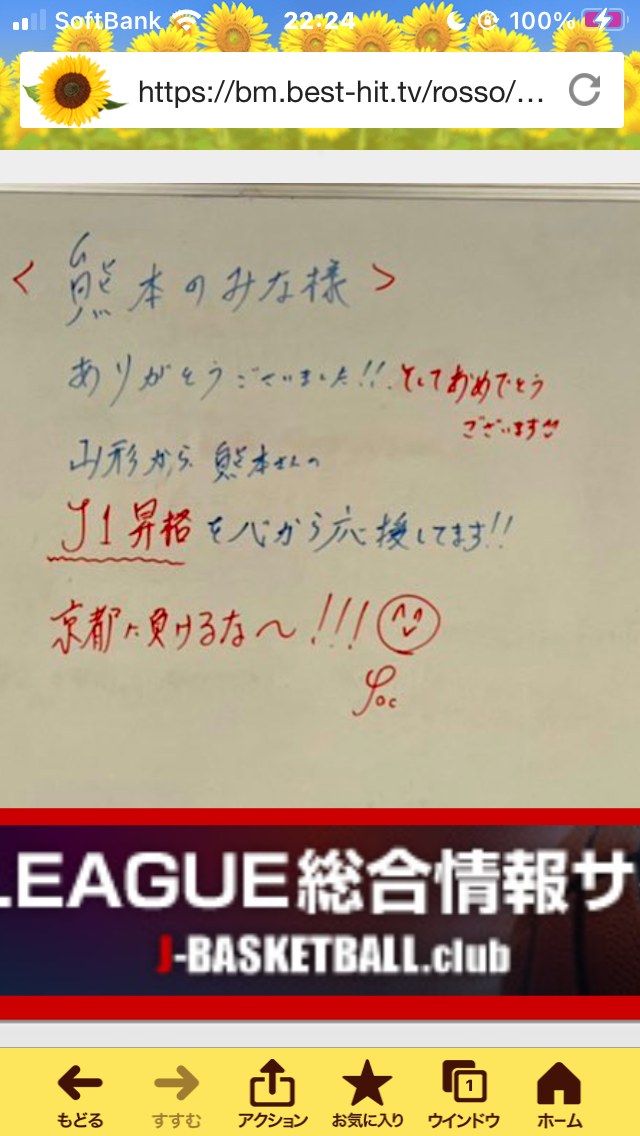 SoftBank 22:24 100%
https://bm.best-hit.tv/rosso/…
<熊本のみな様>
ありがとうございました!!.そしておめでとう
ございます
山形から熊本さんの
J1昇格を心から応援してます!!
京都に負けるな〜!!!
LEAGUE総合情報サ
J-BASKETBALL.club
1
もどる すすむ アクション お気に入り ウインドウ ホーム